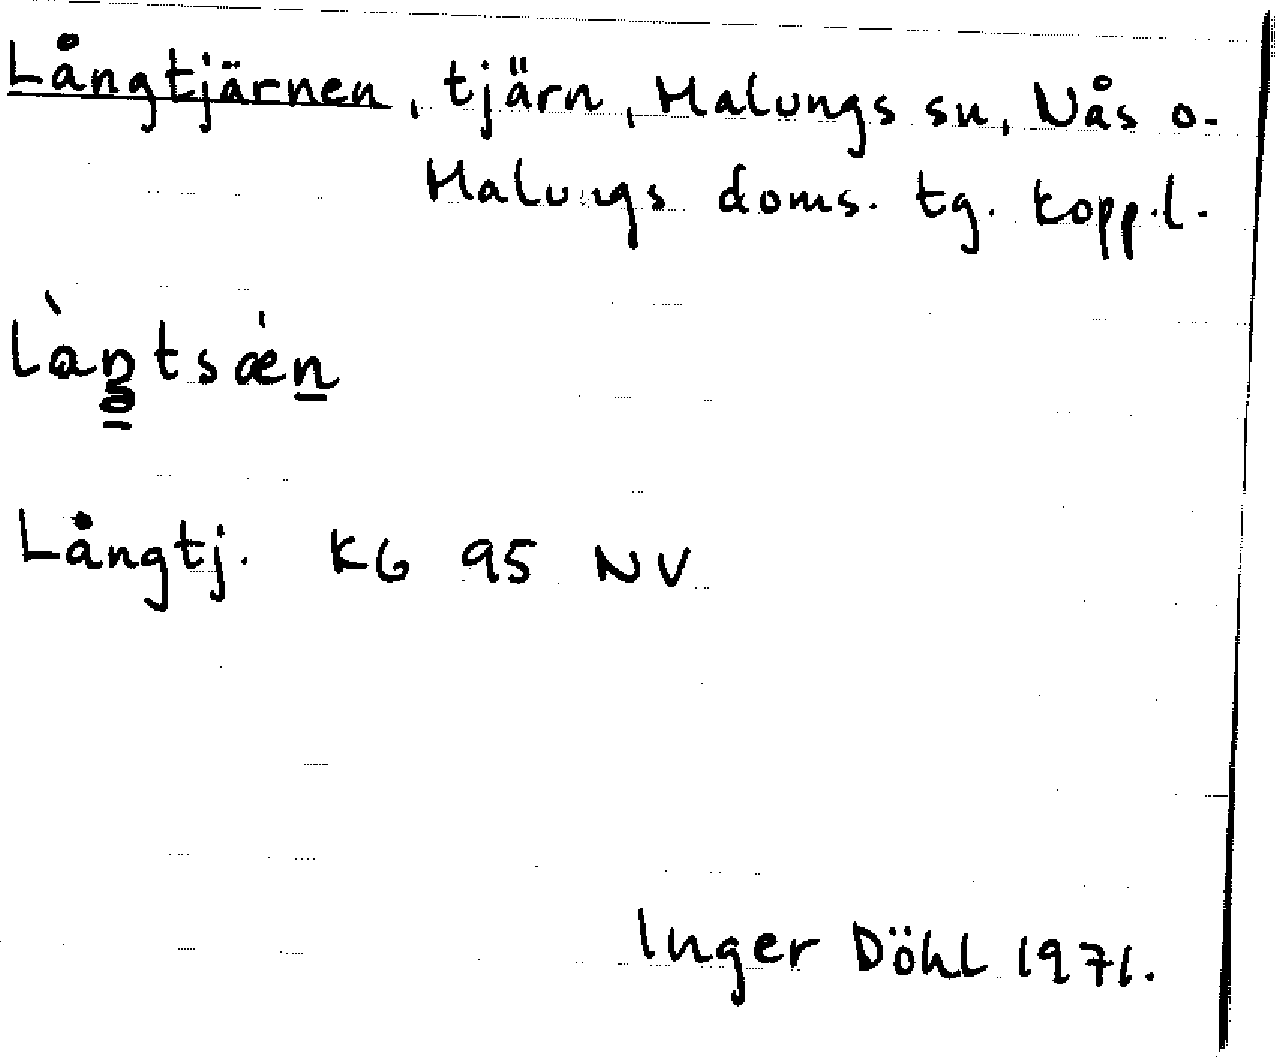 Långtjärnen, tjärn, Malungs sn, Nås o.
Malungs doms. tg. Kopp.l.
làŋtsǽn
Långtj. KG 95 NV
Inger Döhl 1971.